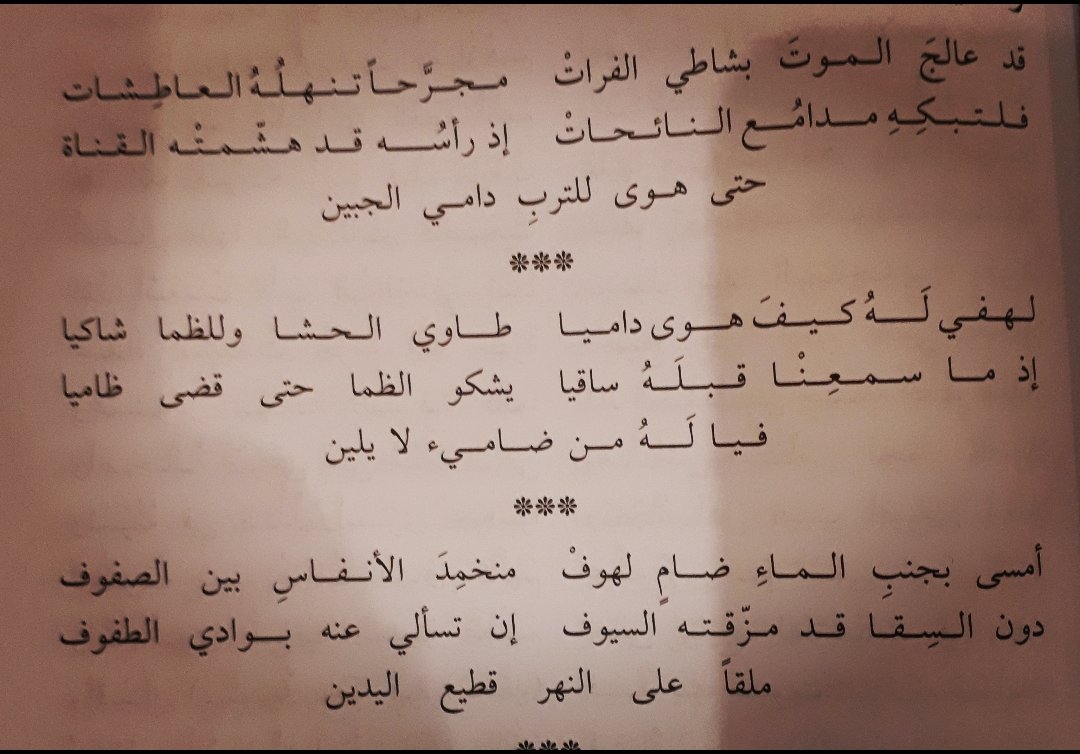 قد عالجَ الموتَ بشاطي الفراتْ مجرَّحاً تنهلُهُ العاطِشات
فلتبكِهِ مدامُع النائحاتْ إذ رأسُه قد هشّمتْه القناة
حتى هوى للتربِ دامي الجبين
***
لهفي لَهُ كيفَ هوى داميا طاوي الحشا وللظما شاكيا
إذ ما سمعِنْا قبلَهُ ساقيا يشكو الظما حتى قضى ظاميا
فيا لَهُ من ضاميء لا يلين
***
أمسى بجنبِ الماءِ ضامٍ لهوفْ منخمِدَ الأنفاسِ بين الصفوف
دون السِقا قد مزّقته السيوف إن تسألي عنه بوادي الطفوف
ملقاً على النهر قطيع اليدين
***